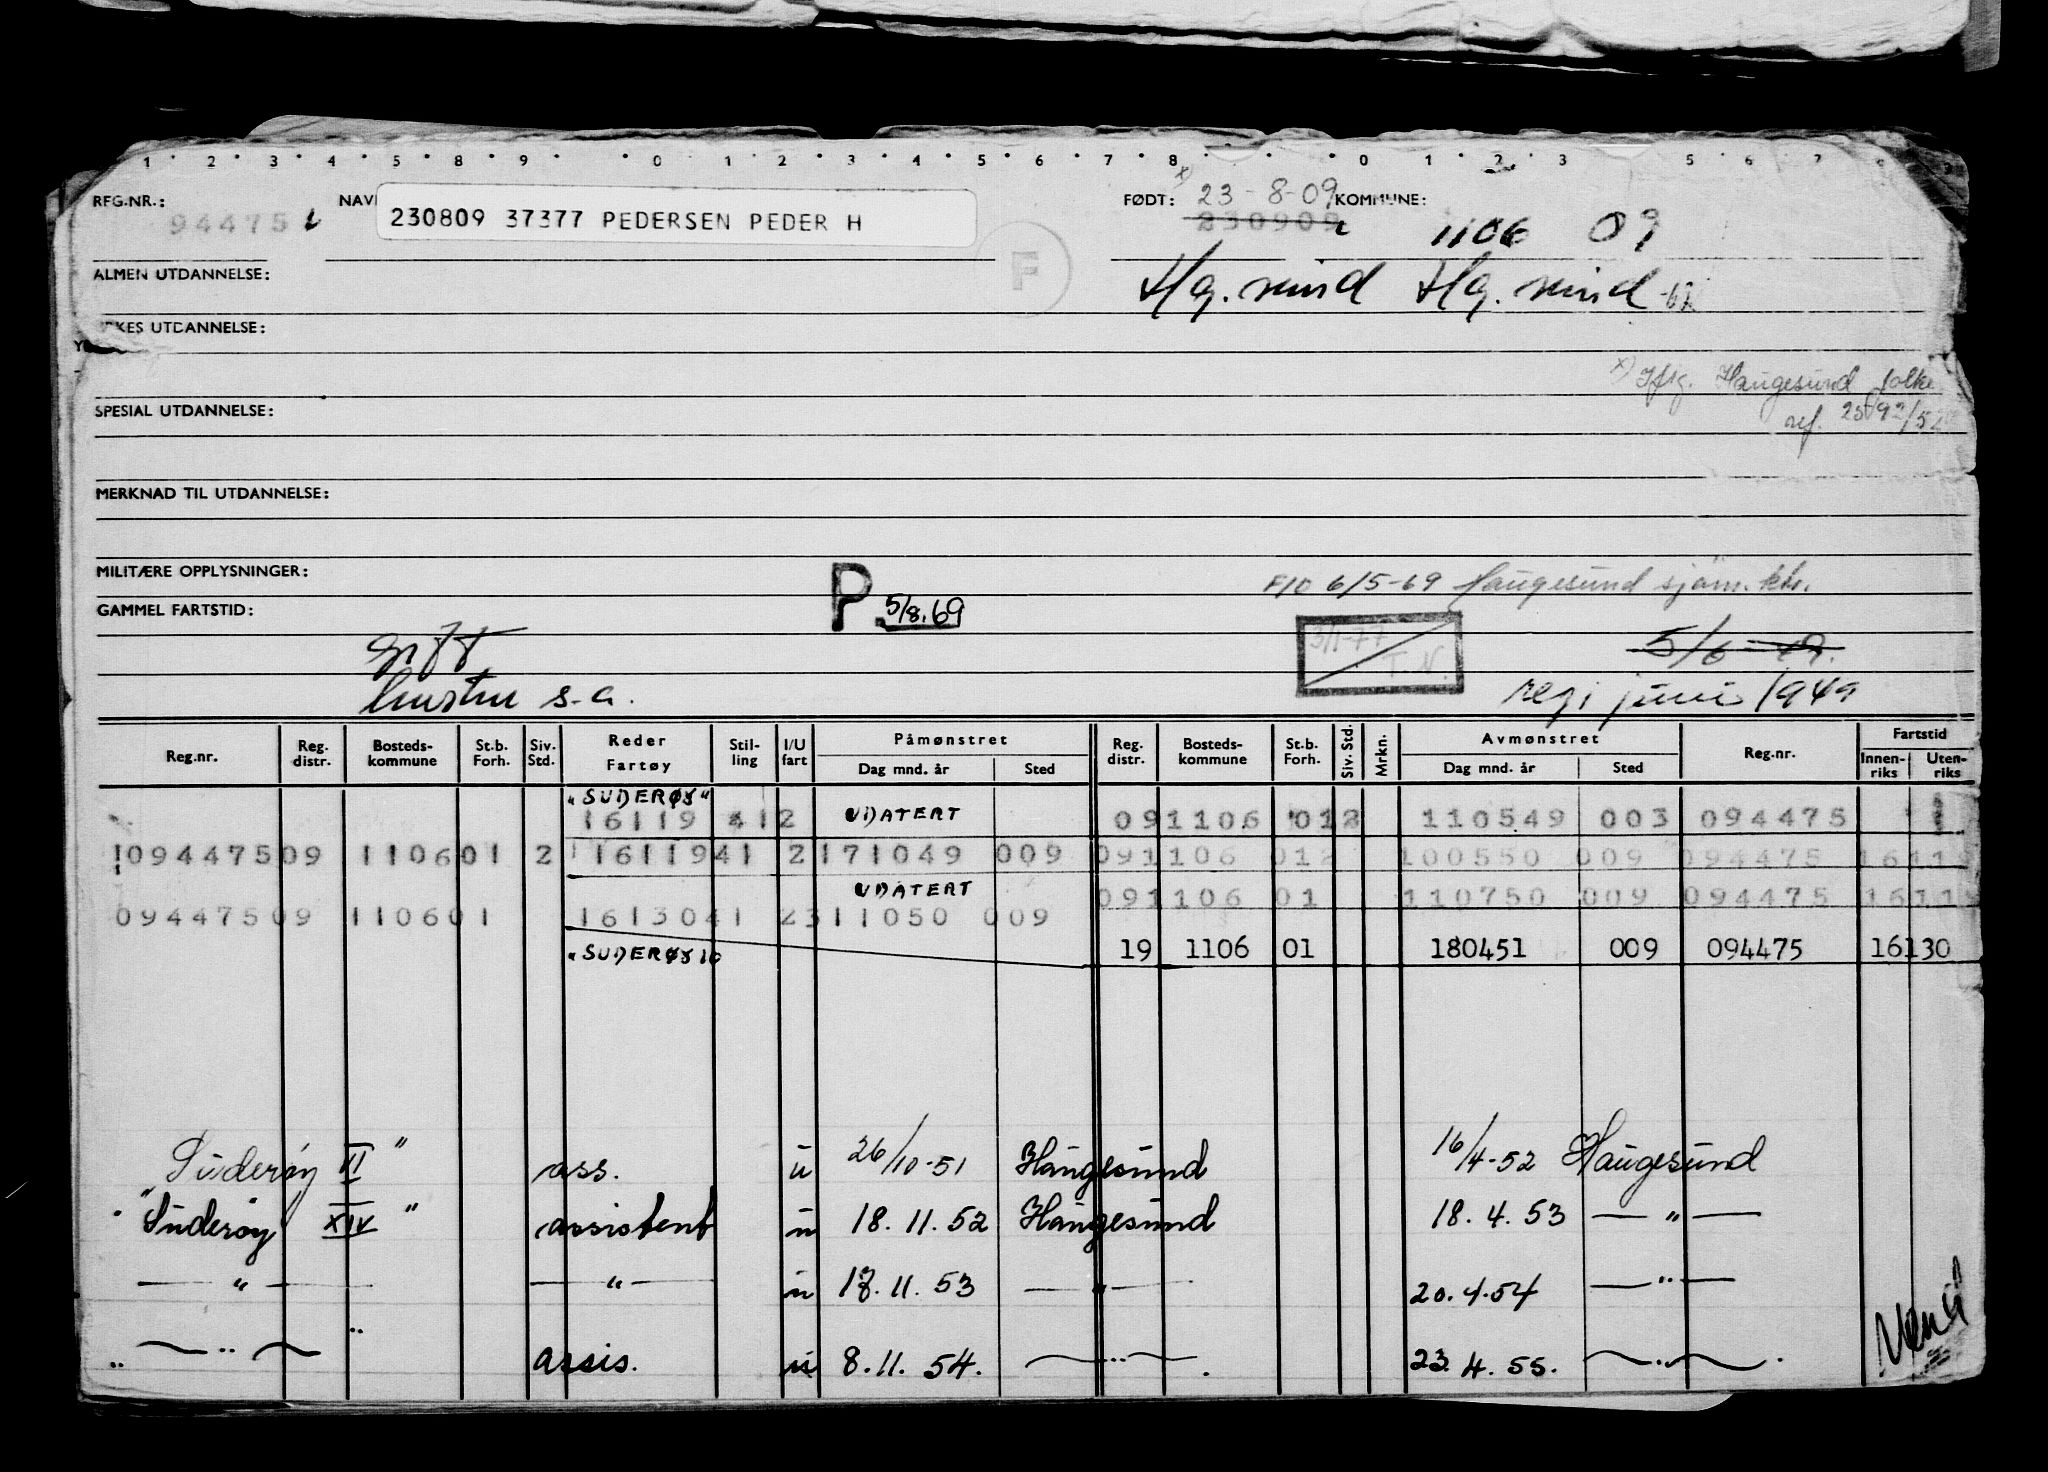 1 · 2 · 3 · 4 · 5 · 8 · 9 · · 0 · 1 · 2 · 3 · 4 · 5 · 6 · 7 · 8 · · 0 · 1 · 2 · 3 5 · 6 · 7
REG.NR.: NAV 230809 37377 PEDERSEN PEDER H FØDT: x) 23-8-09 KOMMUNE:
94475 230909 1106 09
F
ALMEN UTDANNELSE: Hg.sund Hg.sund -62
RKES UTDANNELSE:
x) Iflg. Haugesund folke
SPESIAL UTDANNELSE: ref. 2592/52
MERKNAD TIL UTDANNELSE:
MILITÆRE OPPLYSNINGER: P 5/8.69 F/O 6/5-69 Haugesund sjøm.ktr.
GAMMEL FARTSTID:
gift 3/1-77 T.N. 5/6-49.
hustru s.a. reg i juni 1949
Reg.nr. Reg. distr. Bosteds-kommune St.b. Forh. Siv. Std. Reder Fartøy Stil-ling I/U fart Påmønstret Dag mnd. år Sted Reg. distr. Bosteds-kommune St.b. Forh. Siv. Std. Mrkn. Avmønstret Dag mnd. år Sted Reg.nr. Fartstid Innen-riks Uten-riks
"SUDERØY"
16119 412 UDATERT 091106 012 110549 003 094475
09447509 110601 2 1611941 2171049 009 091106 012 100550 009 094475 1611
UDATERT 091106 01 110750 009 094475 1611
09447509 110601 1613041 2311050 009
"SUDERØY 10 19 1106 01 180451 009 094475 16130
Suderøy VI " ass. u 26/10-51 Haugesund 16/4-52 Haugesund
"Suderøy XIV " assistent u 18.11.52 Haugesund 18.4.53 — " —
— " — — " — u 17.11.53 — " — 20.4.54 — " —
— " — assis. u 8.11.54. — " — 23.4.55. — " —